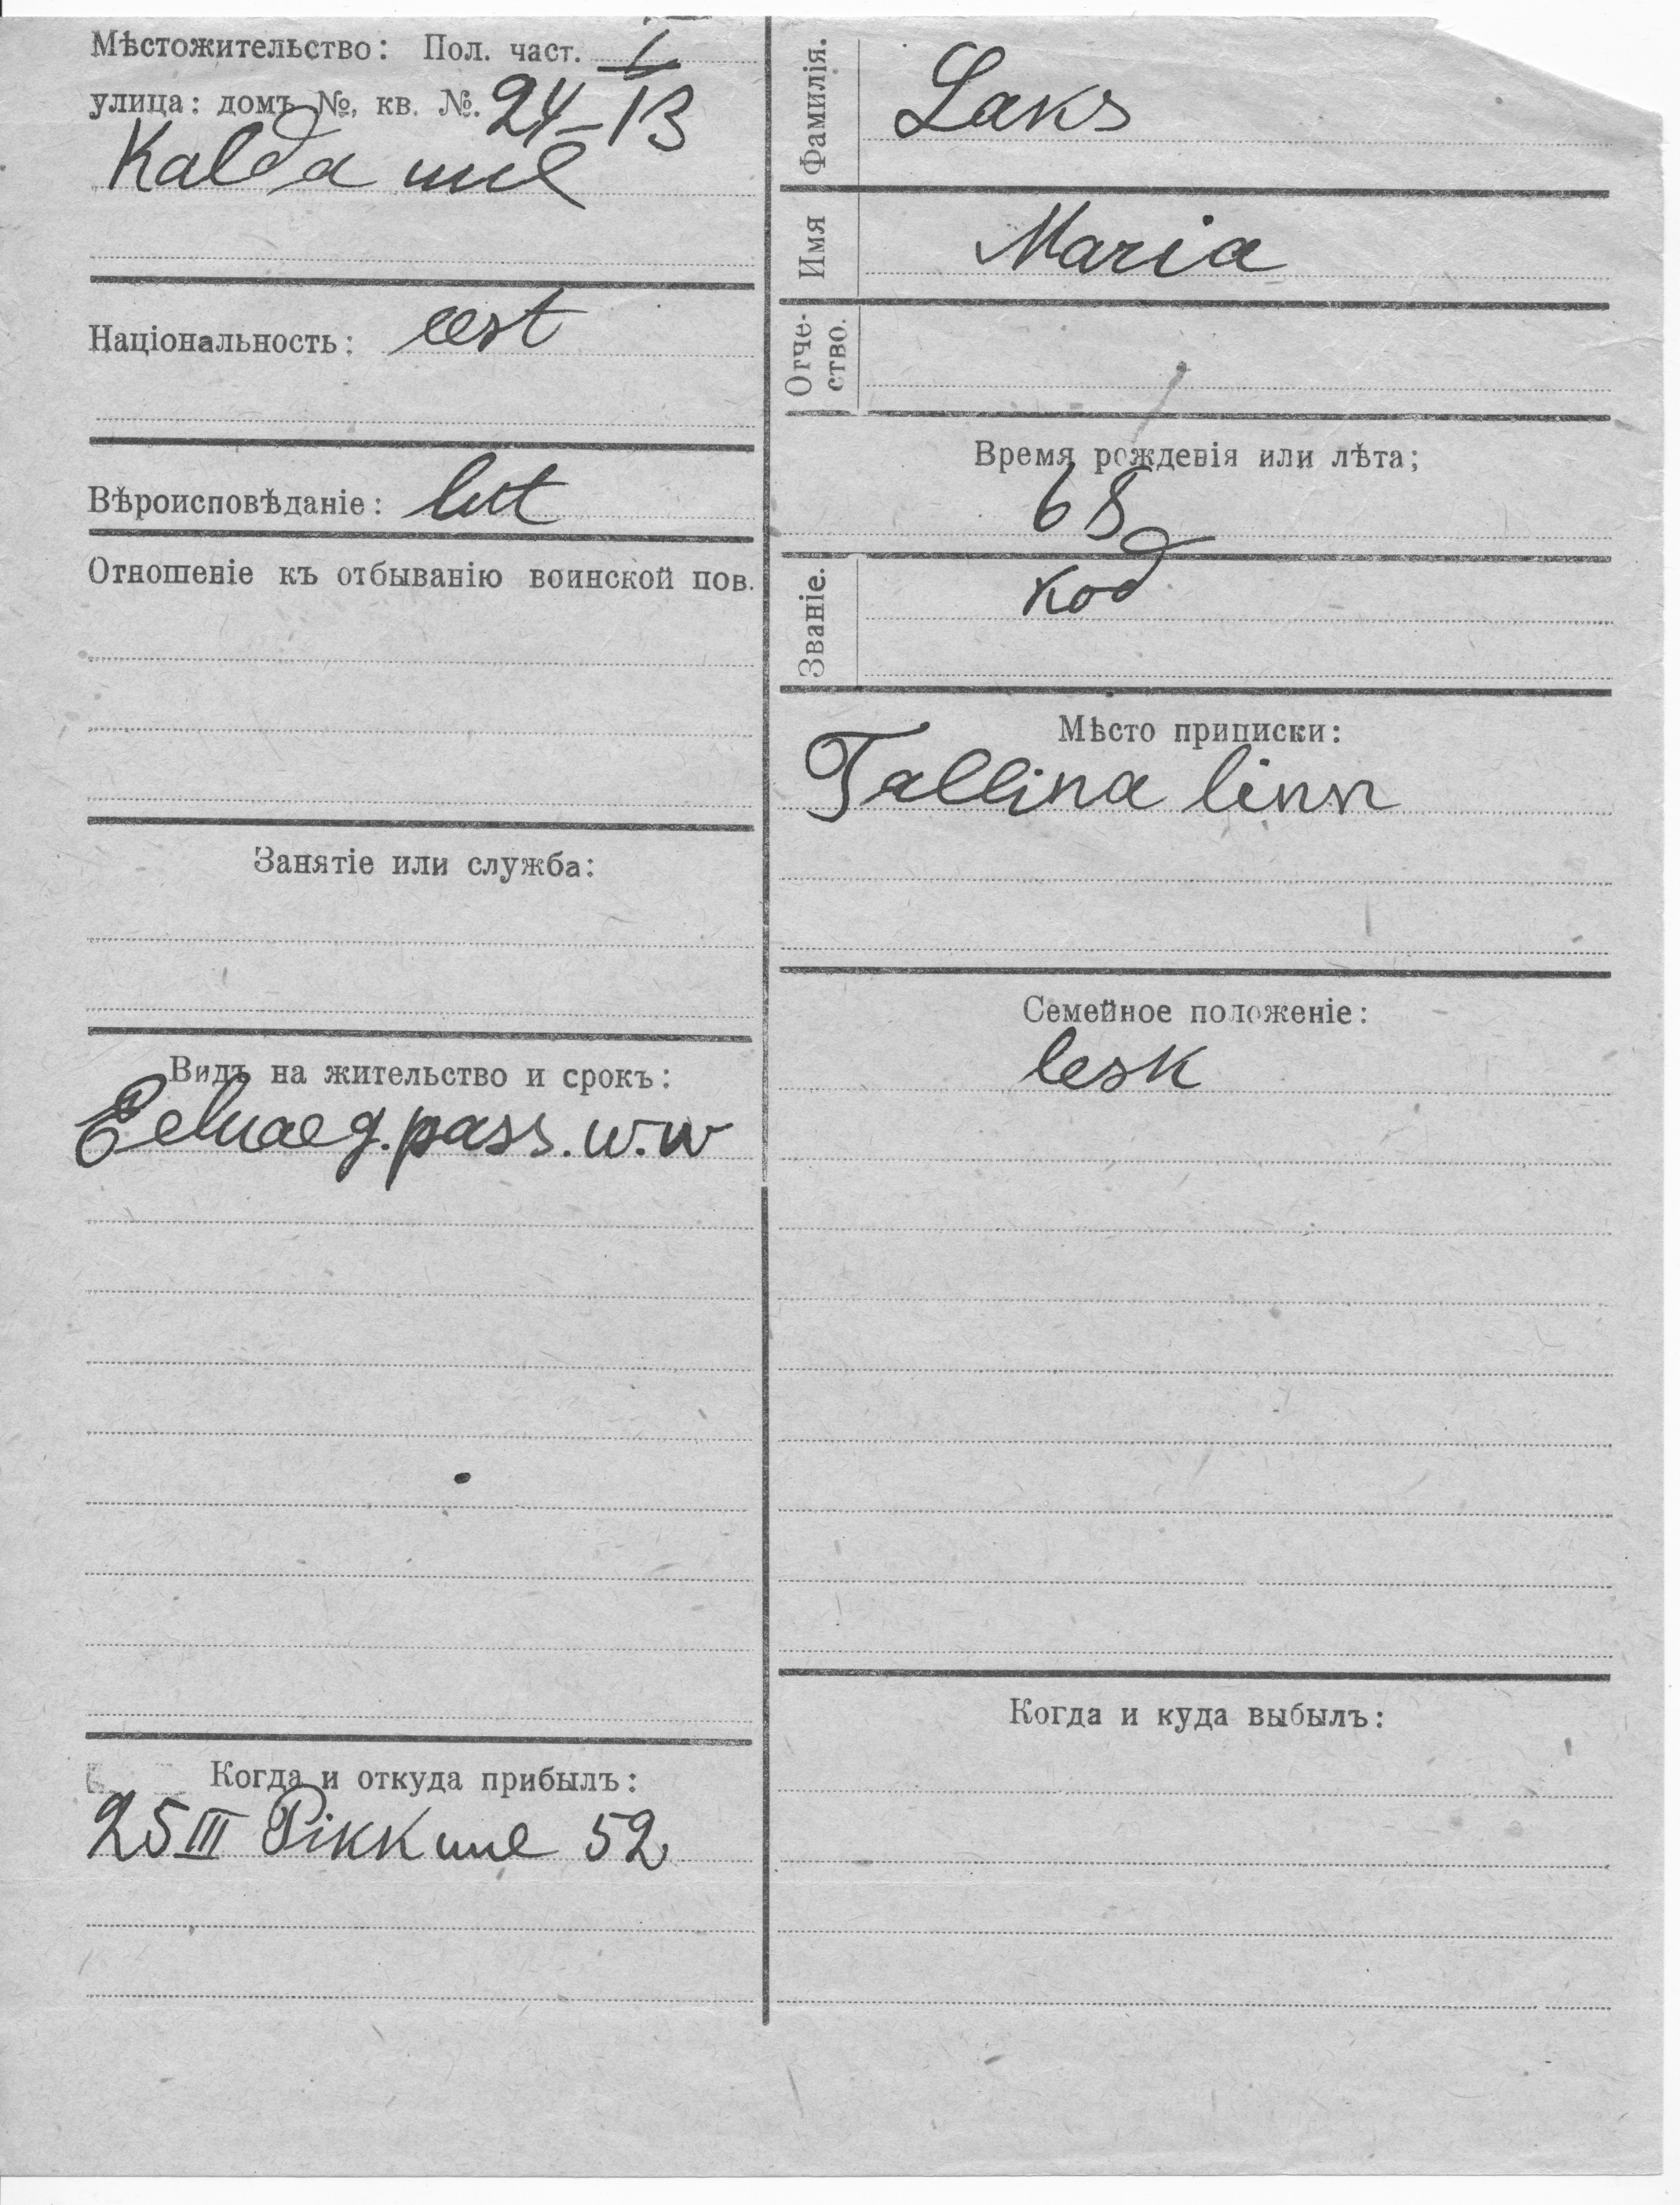 Мѣстожительство: Пол. част. I
улица: домъ №, кв. №. 24-13
Kalda uul
Національность: eest
Вѣроисповѣданіе: lut
Отношеніе къ отбыванію воинской пов.
Занятіе или служба:
Видъ на жительство и срокъ:
pass. w.w
Когда и откуда прибылъ:
25 III Pikk uul 52
Фамилія. Laks
Имя Maria
Отче-
ство.
Время рожденія или лѣта;
68
Званіе. kod
Мѣсто приписки:
Tallina linn
Семейное положеніе:
lesk
Когда и куда выбылъ: